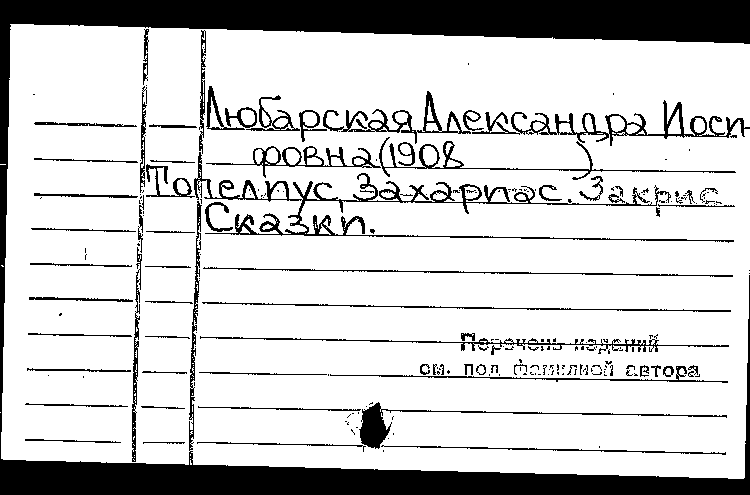 Любарская, Александра Иоси-
фовна (1908 )
Топелиус, Захариас. Закрис
Сказки.
Перечень изданий
см. под фамилией автора